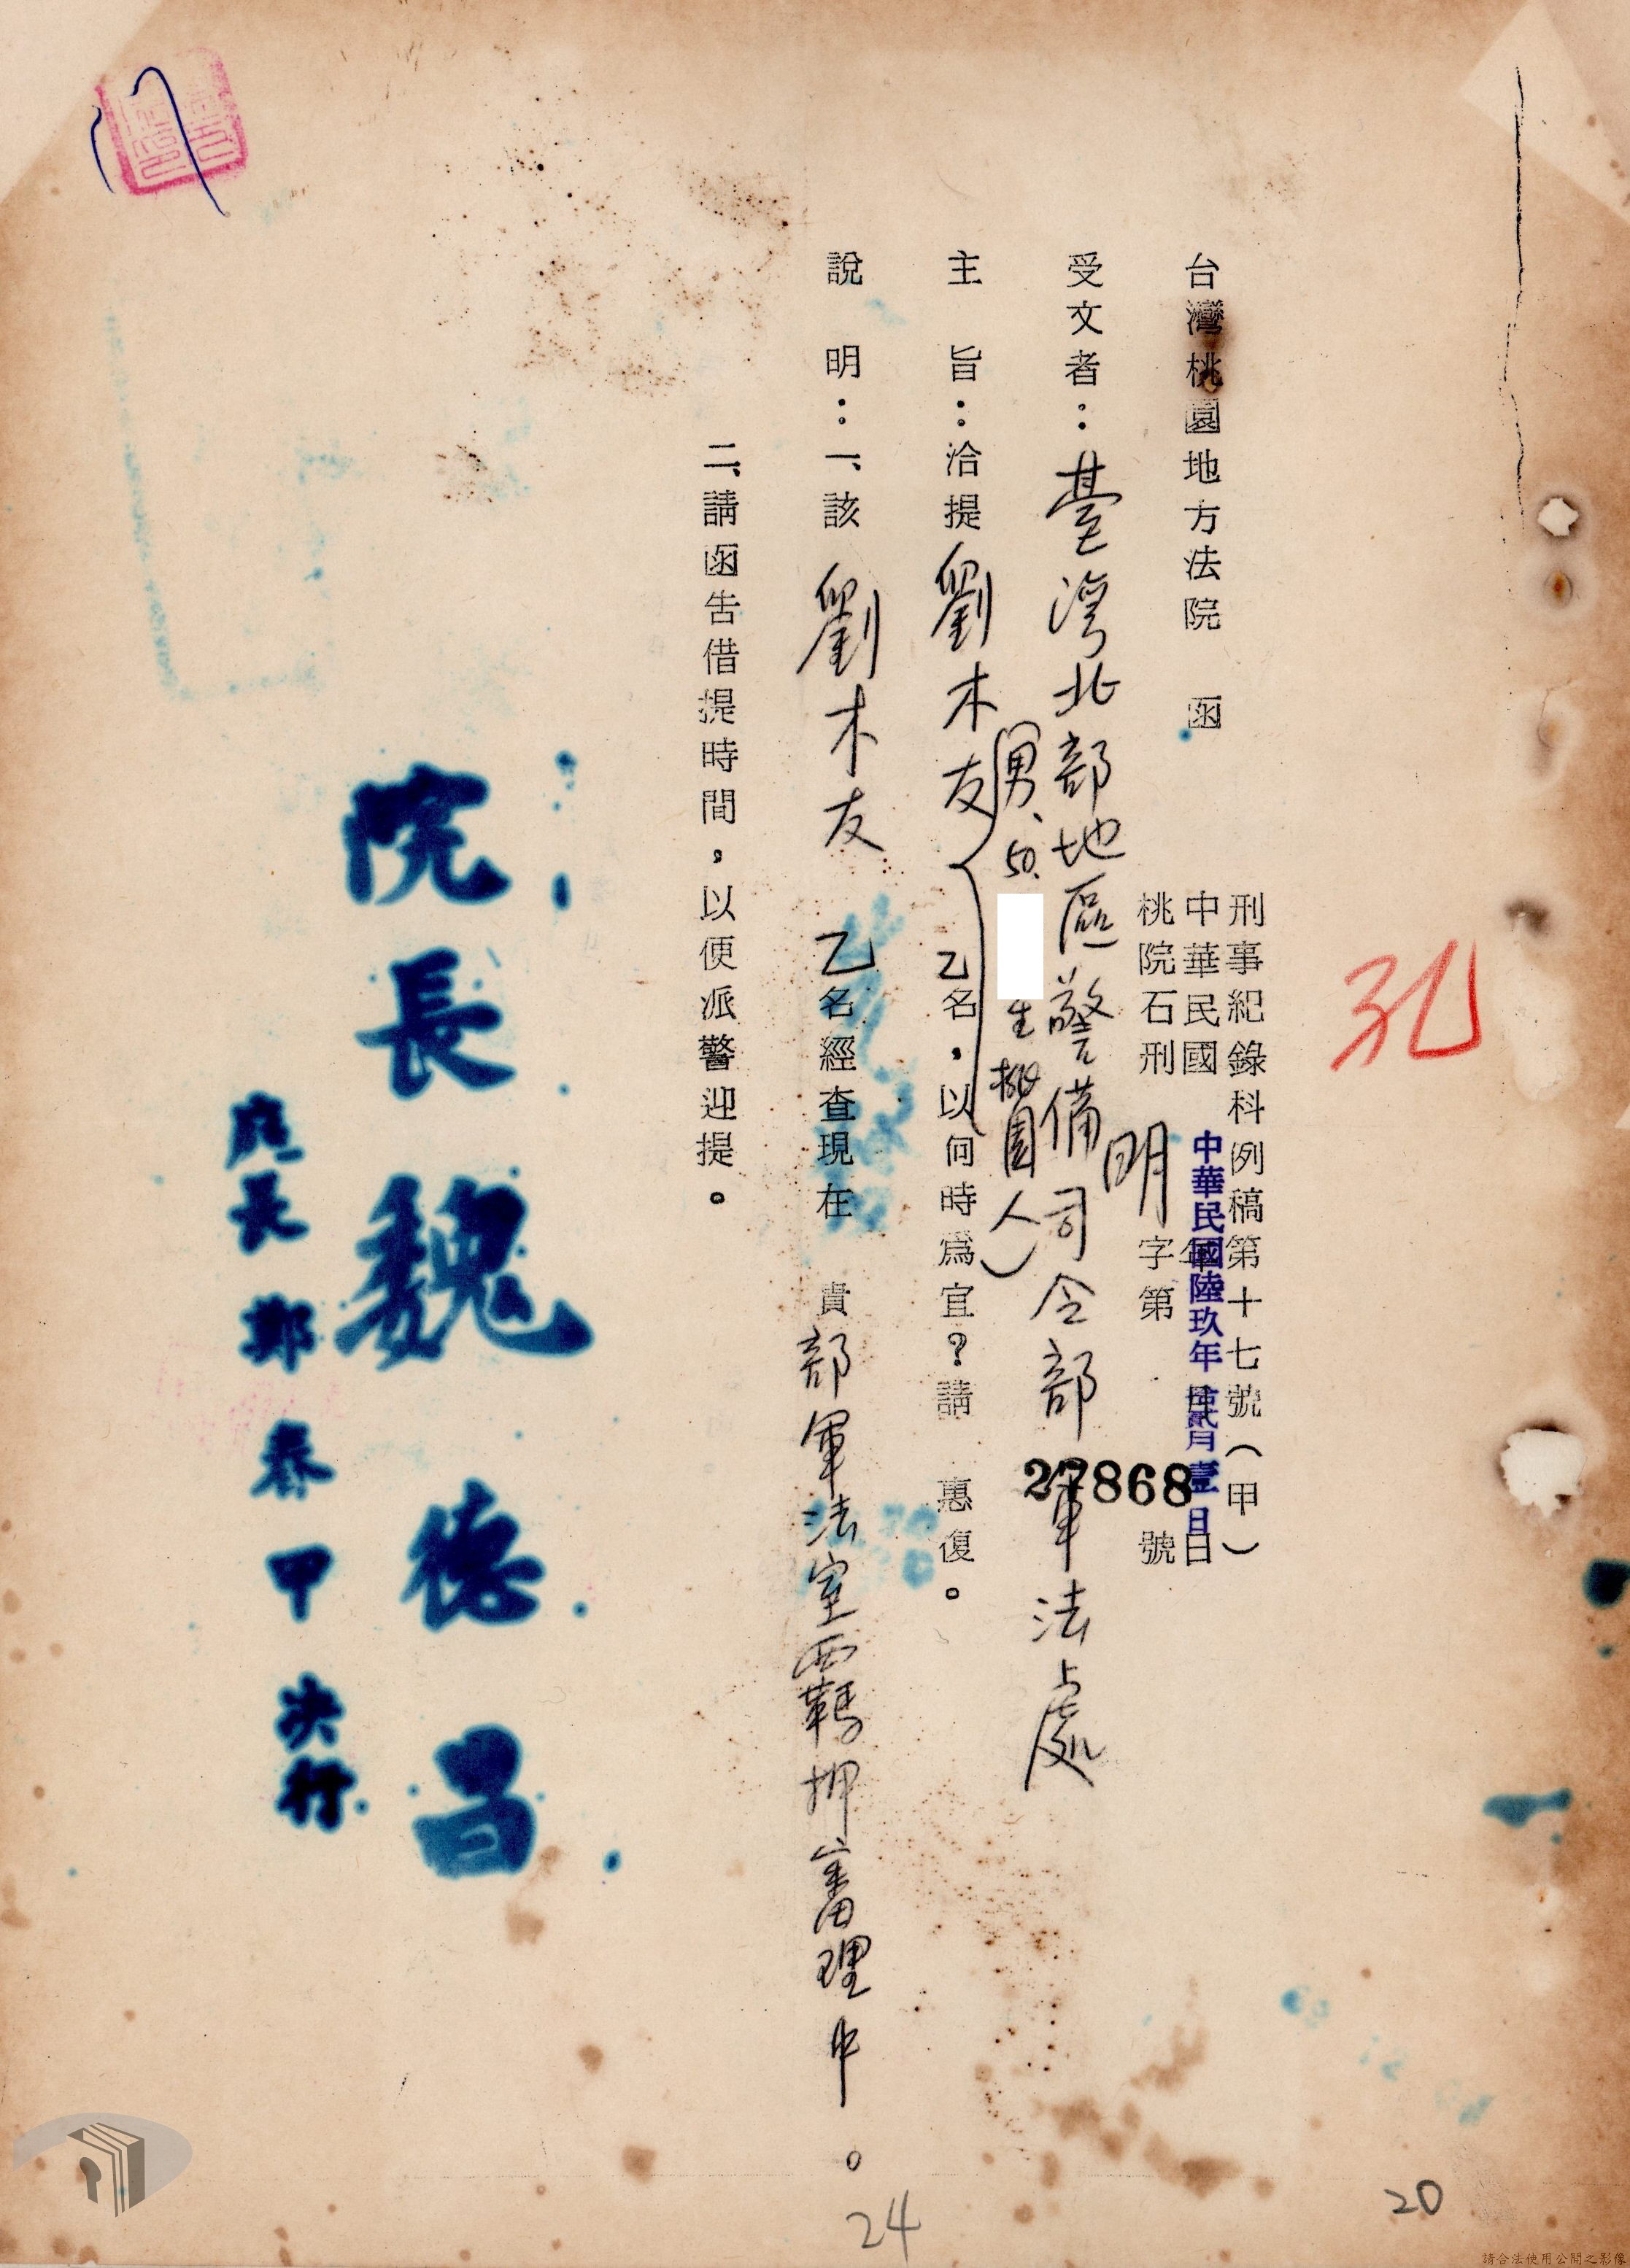 孔
刑事紀錄科例稿第十七號（甲）
中華民國 年 月 日
中華民國陸玖年拾貳月壹日
桃院石刑明字第27868號
台灣桃園地方法院 函
受文者：臺灣北部地區警備司令部軍法處
（男、50. 生 桃園人）
主 旨：洽提劉木友 乙名，以何時為宜？請 惠復。
說 明：一、該 劉木友 乙名經查現在 貴部軍法室覊押審理中。
二、請函告借提時間，以便派警迎提。
院長魏德昌
庭長鄭春甲決行
24
20
請合法使用公開之影像